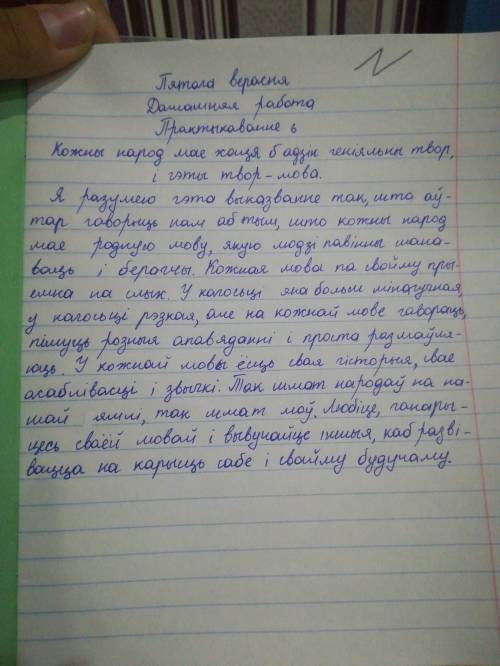 Пятога верасня
Дамашняя работа
Практыкаванне 6
Кожны народ мае хоця б адзін геніяльны твор,
і гэты твор - мова.
Я разумею гэта выказванне так, што аў-
тар гаворыць нам аб тым, што кожны народ
мае родную мову, якую людзі павінны шана-
ваць і берагчы. Кожная мова па свойму пры-
емна на слых. У кагосьці яна больш міндгучная,
у кагосьці рэзкая, але на кожнай мове гавораць,
пішуць розныя апавяданні і проста размаўля-
юць. У кожнай мовы ёсць свая гісторыя, свае
асаблівасці і звычкі. Так шмат народаў на на-
шай зямлі, так шмат моў. Любіце, ганары-
цесь сваёй мовай і вывучайце іншыя, каб разві-
вацца на карысць сабе і свойму будучаму.